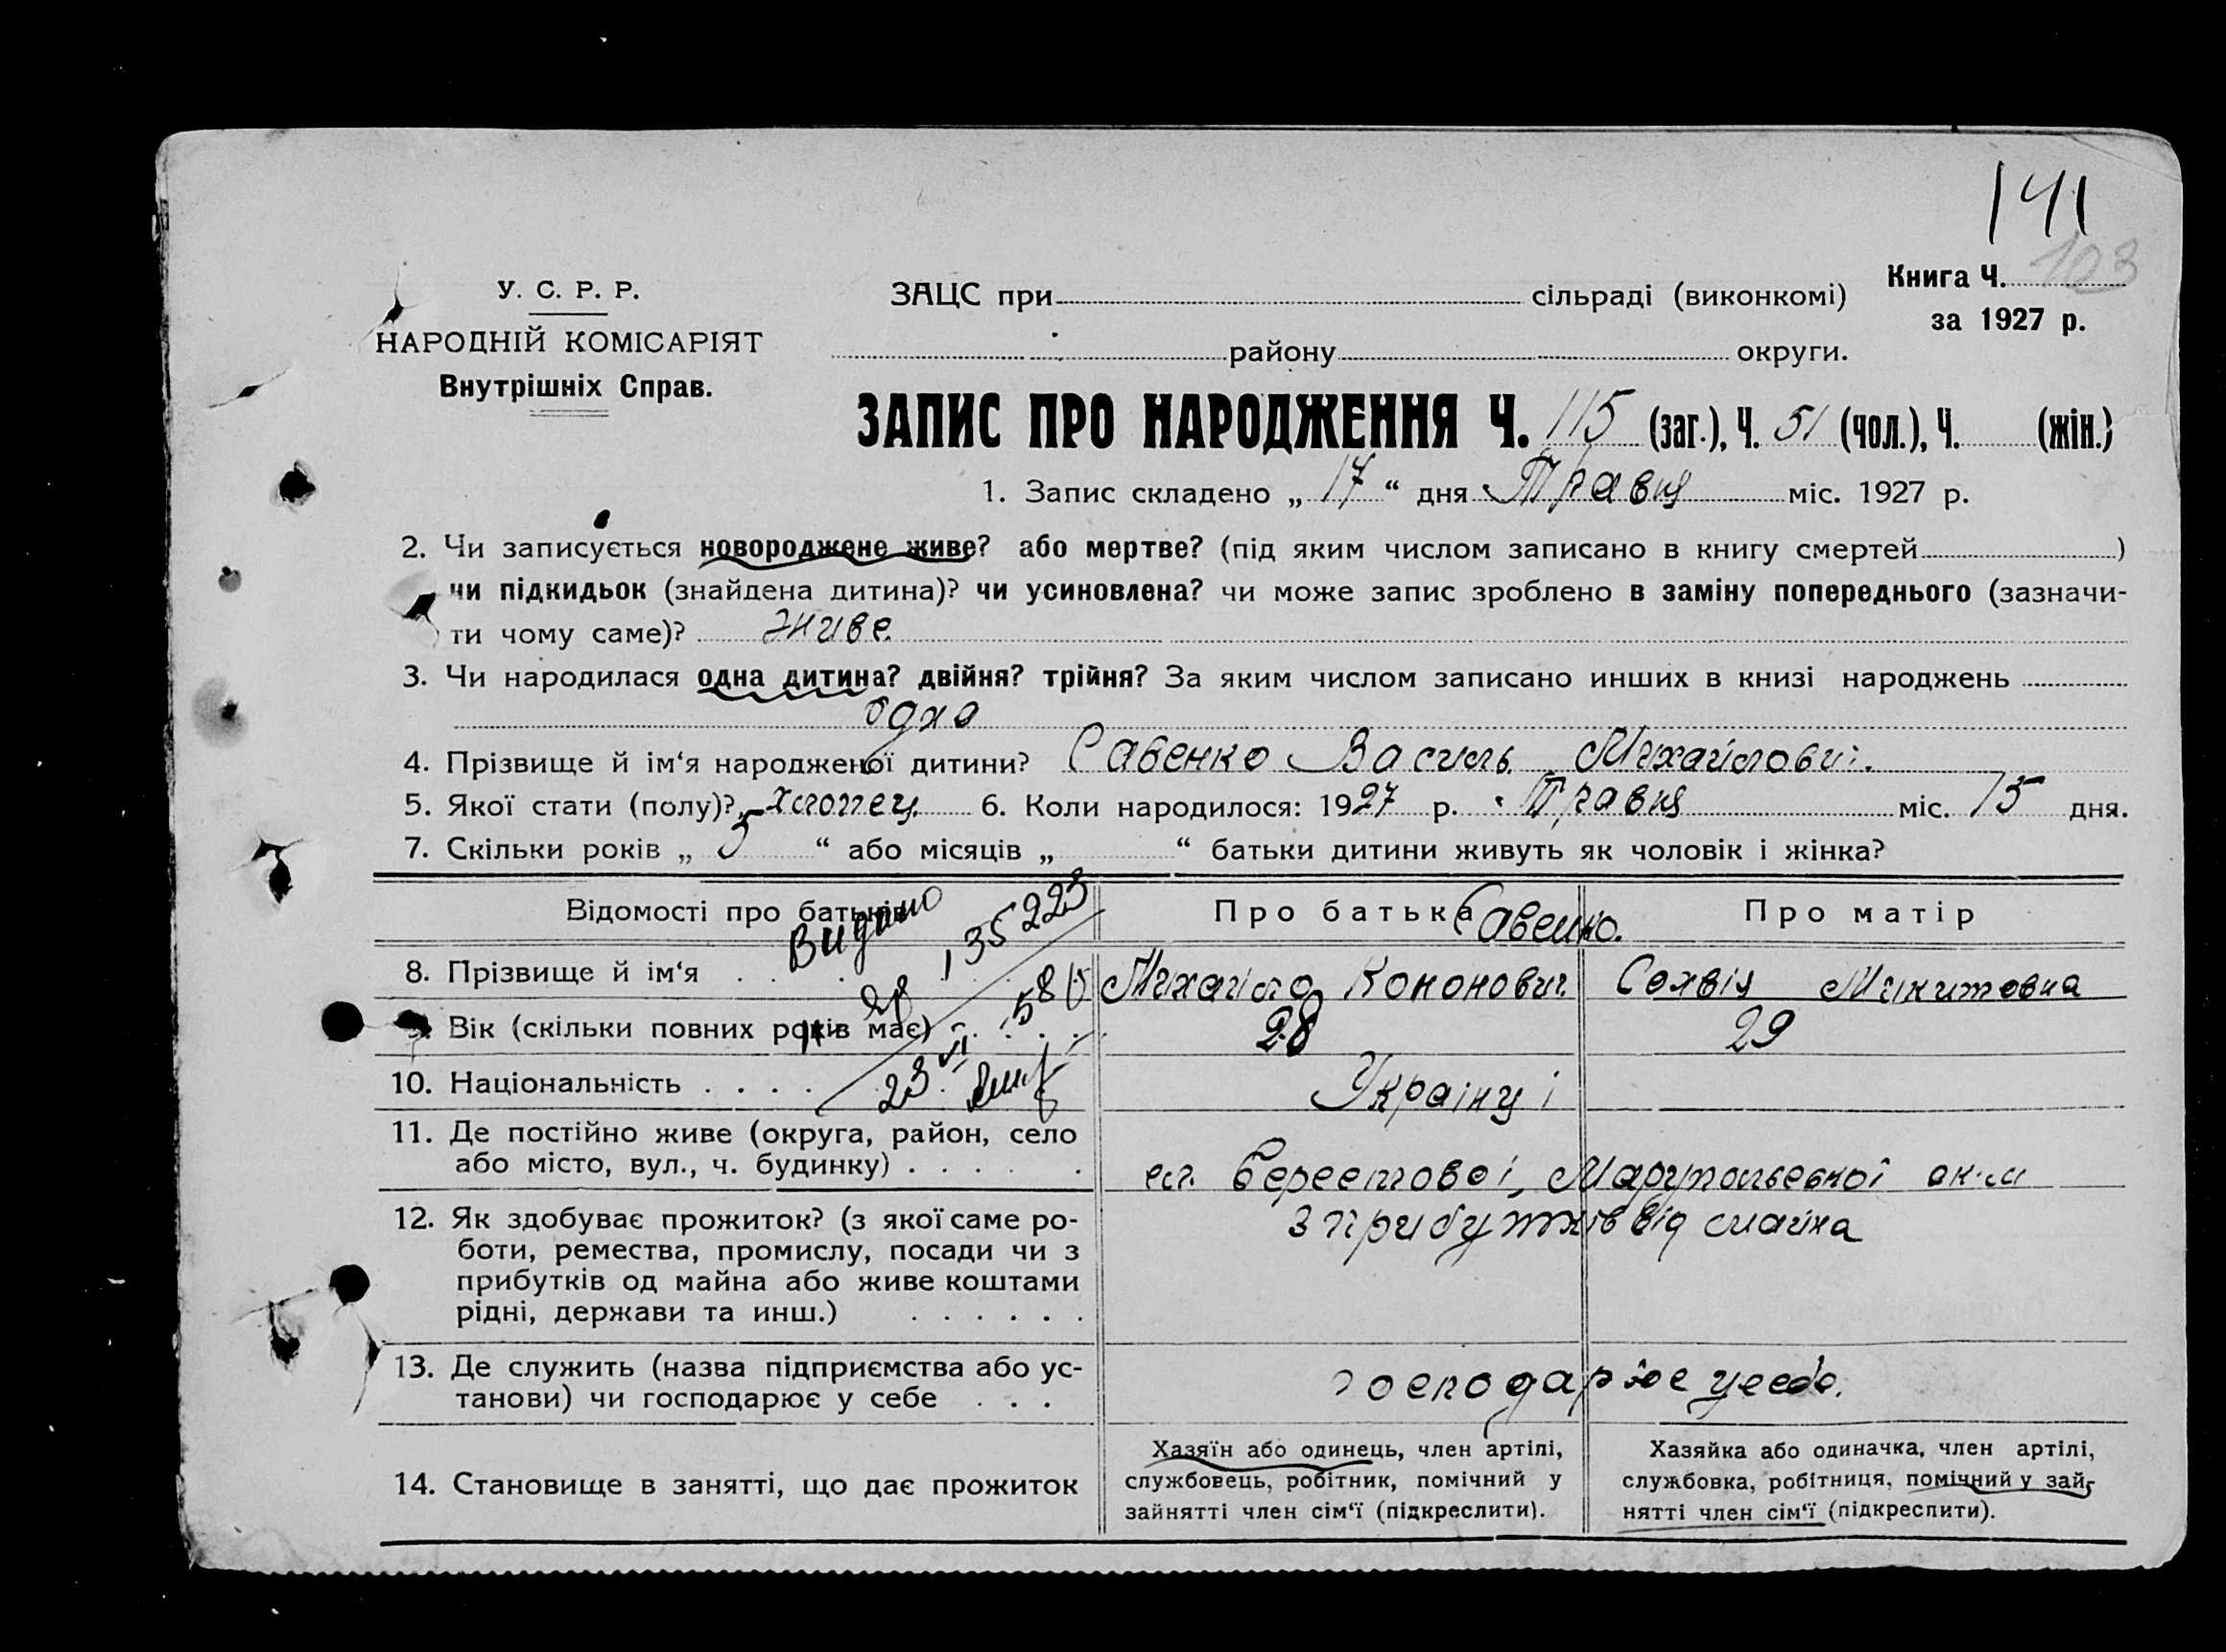 141
У. С. Р. Р.
НАРОДНІЙ КОМІСАРІЯТ
Внутрішніх Справ.
ЗАЦС при сільраді (виконкомі)
Книга Ч. 103
за 1927 р.
району округи.
ЗАПИС ПРО НАРОДЖЕННЯ Ч. 115 (заг.), Ч. 51 (чол.), Ч. (жін.)
1. Запис складено „ 17 “ дня Травня міс. 1927 р.
2. Чи записується новороджене живе? або мертве? (під яким числом записано в книгу смертей )
чи підкидьок (знайдена дитина)? чи усиновлена? чи може запис зроблено в заміну попереднього (зазначи-
ти чому саме)? живе
3. Чи народилася одна дитина? двійня? трійня? За яким числом записано инших в книзі народжень
одна
4. Прізвище й ім‘я народженої дитини? Савенко Василь Михайлович
5. Якої стати (полу)? хлопець 6. Коли народилося: 1927 р. Травня міс. 15 дня.
7. Скільки років „ 5 “ або місяців „ “ батьки дитини живуть як чоловік і жінка?
Відомості про батьків Про батька Про матір
Видано 135223 Савенко.
8. Прізвище й ім‘я Михайло Кононович Софія Микитовна
9. Вік (скільки повних років має) 28 29
10. Національність Україну і
23 VI
11. Де постійно живе (округа, район, село
або місто, вул., ч. будинку) Берестової, Маріупольської
12. Як здобуває прожиток? (з якої саме ро- з прибутків від майна
боти, ремества, промислу, посади чи з
прибутків од майна або живе коштами
рідні, держави та инш.)
13. Де служить (назва підприємства або ус-
танови) чи господарює у себе господарює у себе.
14. Становище в занятті, що дає прожиток
Хазяїн або одинець, член артілі,
службовець, робітник, помічний у
зайнятті член сім‘ї (підкреслити).
Хазяйка або одиначка, член артілі,
службовка, робітниця, помічний у зай-
нятті член сім‘ї (підкреслити).